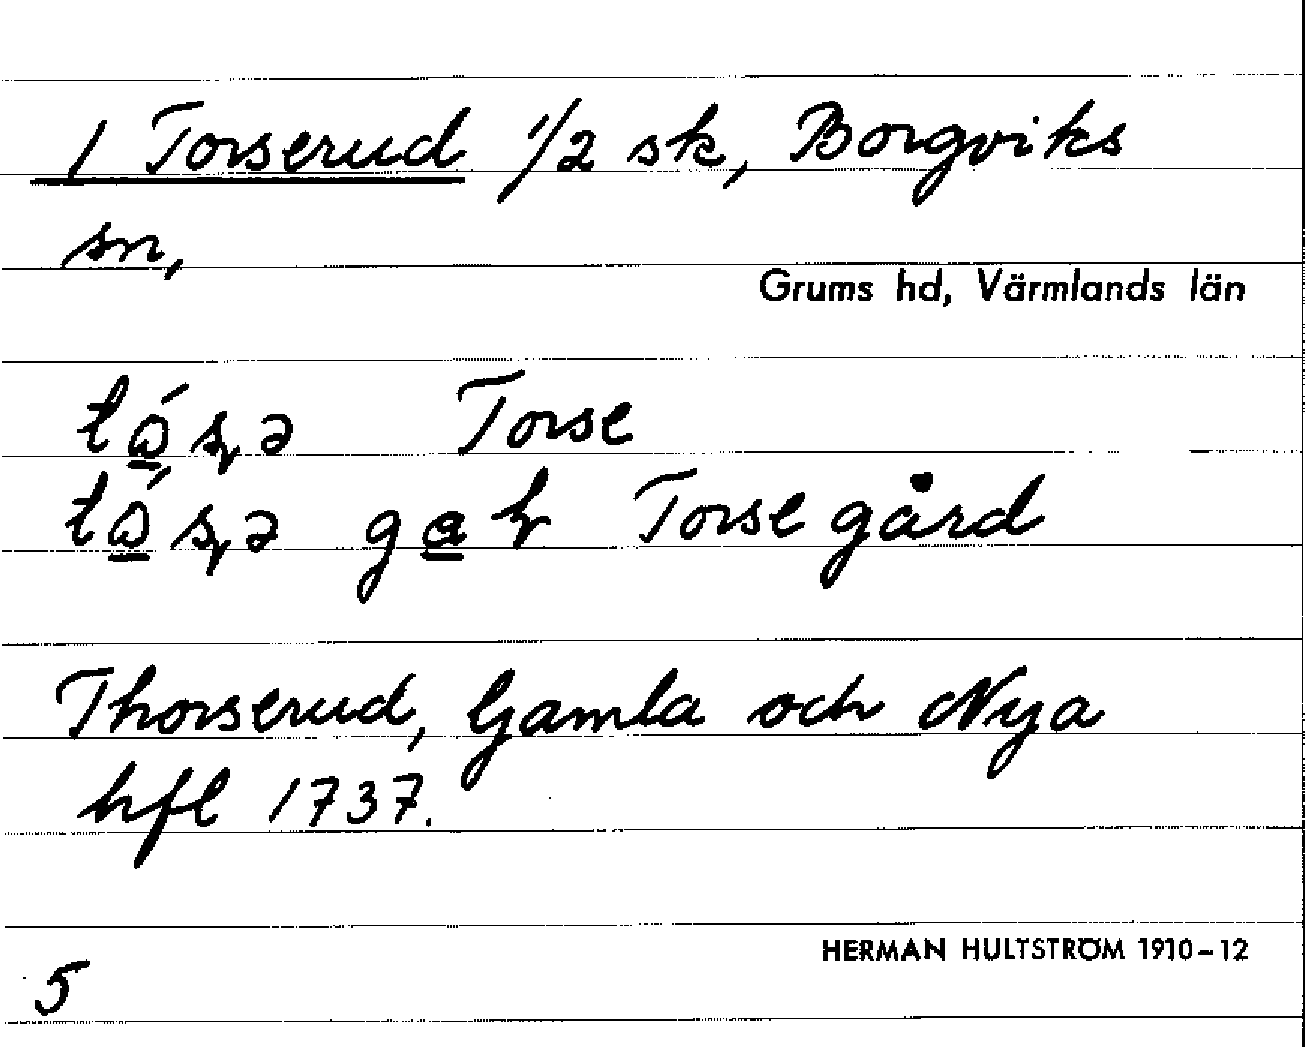 1 Torserud 1/2 sk, Borgviks
sn,
Grums hd, Värmlands län
tǻʂə Torse
tǻʂə gaɽ Torsegård
Thorserud, Gamla och Nya
hfl 1737.
HERMAN HULTSTRÖM 1910-12
5